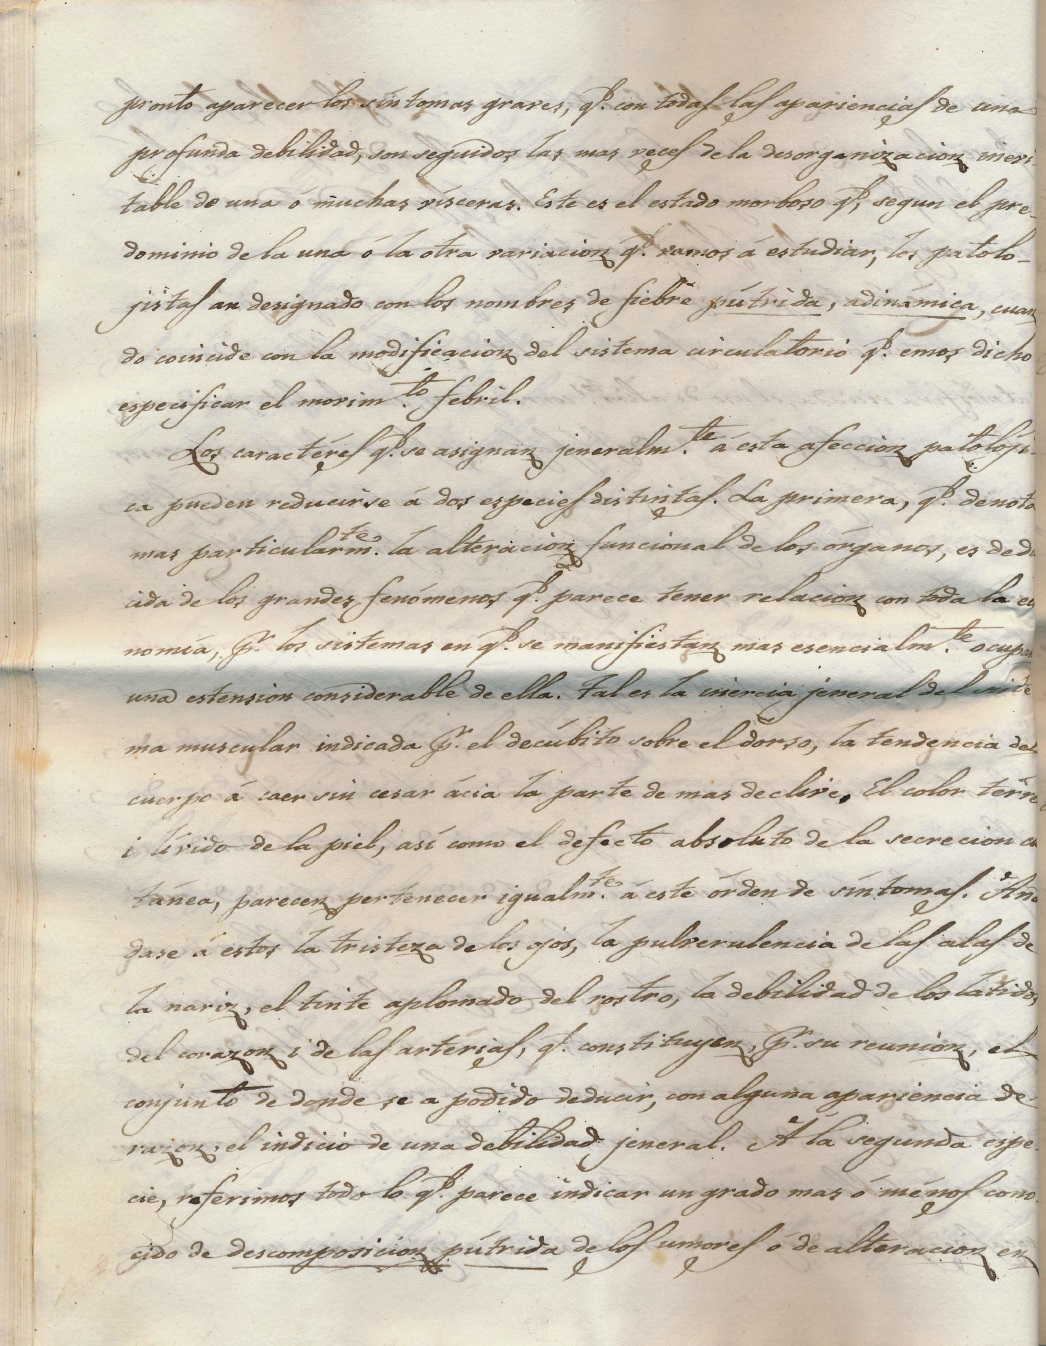 pronto aparecer los síntomas graves, q.e con todas las apariencias de una
profunda debilidad, son seguidos las mas veces de la desorganizacion inevi-
table de una ó muchas vísceras. Este es el estado morboso q.e, segun el pre-
dominio de la una ó la otra variacion q.e vamos á estudiar, los patolo-
jistas an designado con los nombres de fiebre pútrida, adinámica, cuan
do coincide con la modificacion del sistema circulatorio q.e emos dicho
especificar el movim.to febril.
Los caractéres q.e se asignan jeneralm.te á esta afeccion patolóji-
ca pueden reducirse á dos especies distintas. La primera, q.e denota
mas particularm.te la alteracion funcional de los órganos, es dedu
cida de los grandes fenómenos q.e parece tener relacion con toda la eco
nomía, p.r los sistemas en q.e se manifiestan mas esencialm.te ocupan
una estension considerable de ella. Tal es la inercia jeneral del siste
ma muscular indicada p.r el decúbito sobre el dorso, la tendencia del
cuerpo á caer sin cesar ácia la parte de mas declive. El color térreo
i lívido de la piel, así como el defecto absoluto de la secrecion cu
tánea, parecen pertenecer igualm.te á este órden de síntomas. Áña
dase á estos la tristeza de los ojos, la pulverulencia de las alas de
la nariz, el tinte aplomado del rostro, la debilidad de los latidos
del corazon i de las artérias, q.e constituyen, p.r su reunion, el
conjunto de donde se a podido deducir, con alguna apariencia de
razon, el indicio de una debilidad jeneral. Á la segunda espe-
cie, referimos todo lo q.e parece indicar un grado mas ó ménos cono-
cido de descomposicion pútrida de los umores ó de alteracion en